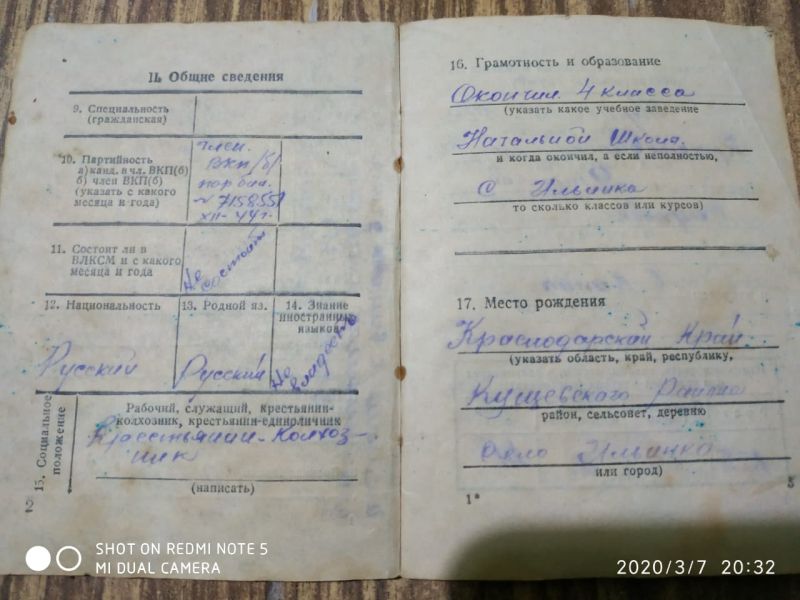 II. Общие сведения
9. Специальность
(гражданская)
10. Партийность
а) канд. в чл. ВКП(б)
б) член ВКП(б)
(указать с какого
месяца и года)
член
ВКП/б/
парбил.
№ 7158551
XII-44г.
11. Состоит ли в
ВЛКСМ и с какого
месяца и года
Не
состоит
12. Национальность
Русский
13. Родной яз.
Русский
14. Знание
иностранных
языков
Не
владеет
15. Социальное
положение
Рабочий, служащий, крестьянин-
колхозник, крестьянин-единоличник
Крестьянин-Колхоз-
ник
(написать)
2
16. Грамотность и образование
Окончил 4 класса
(указать какое учебное заведение
Начальной Школа
и когда окончил, а если неполностью,
С Ильинка
то сколько классов или курсов)
17. Место рождения
Краснодарский Край
(указать область, край, республику,
Кущевского Района
район, сельсовет, деревню
село Ильинка
или город)
1*
SHOT ON REDMI NOTE 5
MI DUAL CAMERA
2020/3/7 20:32